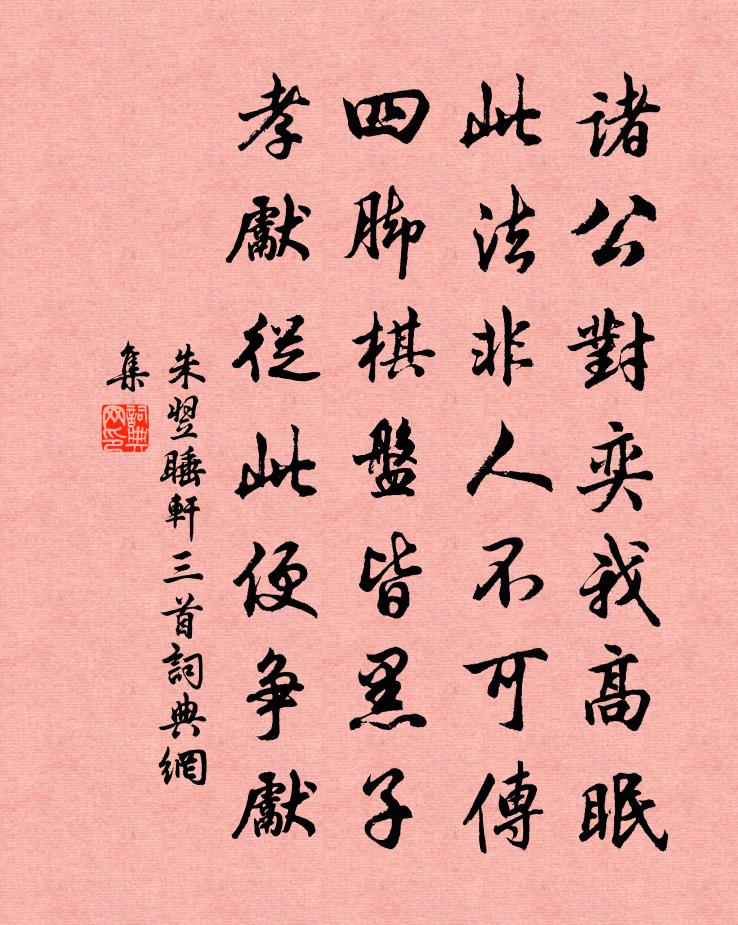 諸公對奕我高眠
此法非人不可傳
四脚棋盤皆黑子
孝獻從此便争獻
朱翌睡軒三首詞典網
集
詞典网印